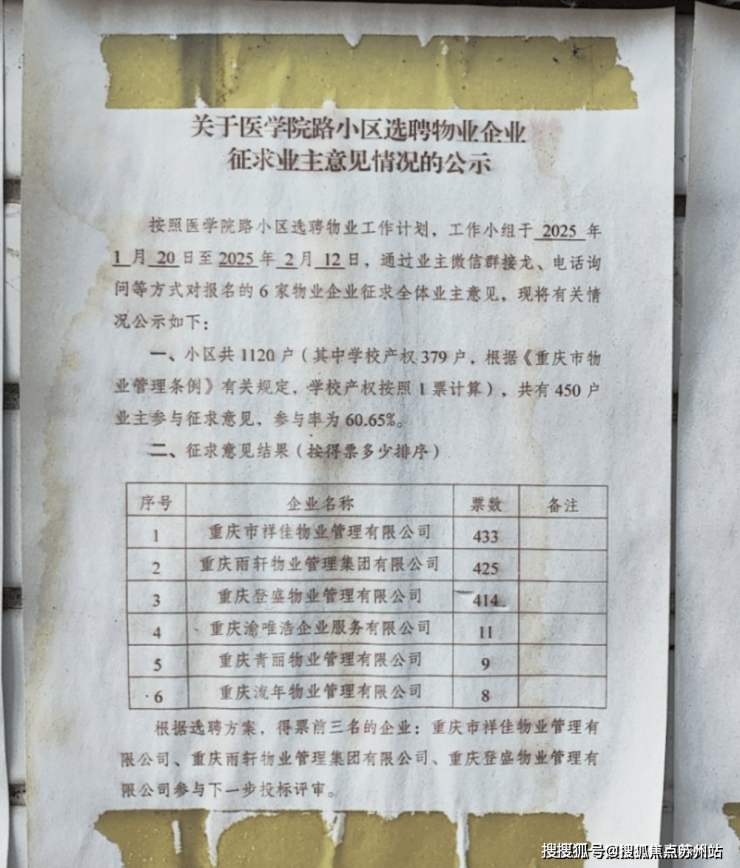 关于医学院路小区选聘物业企业
征求业主意见情况的公示
按照医学院路小区选聘物业工作计划，工作小组于 2025 年
1 月 20 日至 2025 年 2 月 12 日，通过业主微信群接龙、电话询
问等方式对报名的 6 家物业企业征求全体业主意见，现将有关情
况公示如下：
一、小区共 1120 户（其中学校产权 379 户，根据《重庆市物
业管理条例》有关规定，学校产权按照 1 票计算），共有 450 户
业主参与征求意见，参与率为 60.65%。
二、征求意见结果（按得票多少排序）
序号 企业名称 票数 备注
1 重庆市祥佳物业管理有限公司 433
2 重庆雨轩物业管理集团有限公司 425
3 重庆登盛物业管理有限公司 414
4 重庆渝唯浩企业服务有限公司 11
5 重庆青丽物业管理有限公司 9
6 重庆流年物业管理有限公司 8
根据选聘方案，得票前三名的企业：重庆市祥佳物业管理有
限公司、重庆雨轩物业管理集团有限公司、重庆登盛物业管理有
限公司参与下一步投标评审。
搜搜狐号@搜狐焦点苏州站